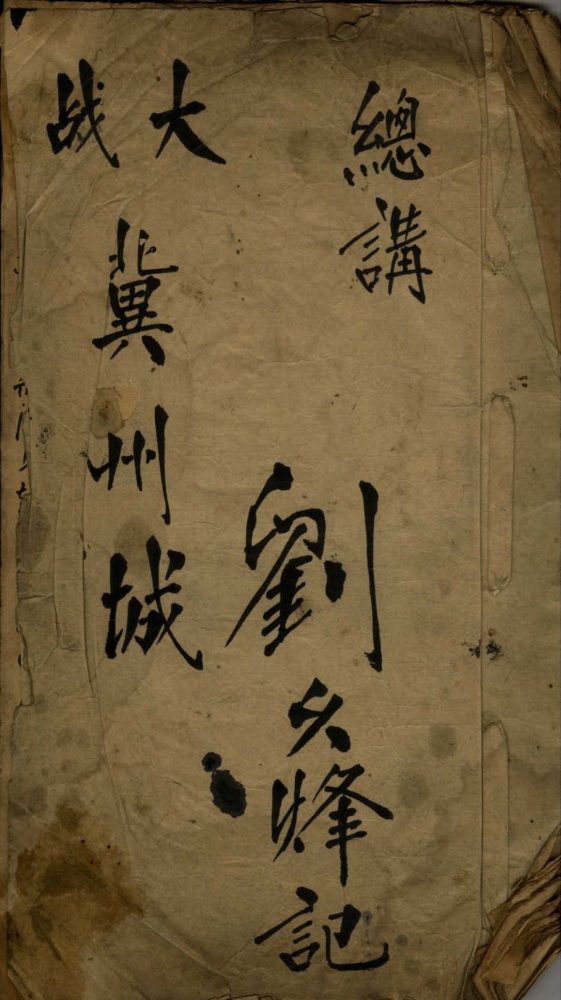 總講
劉久烽記
大战
冀州城